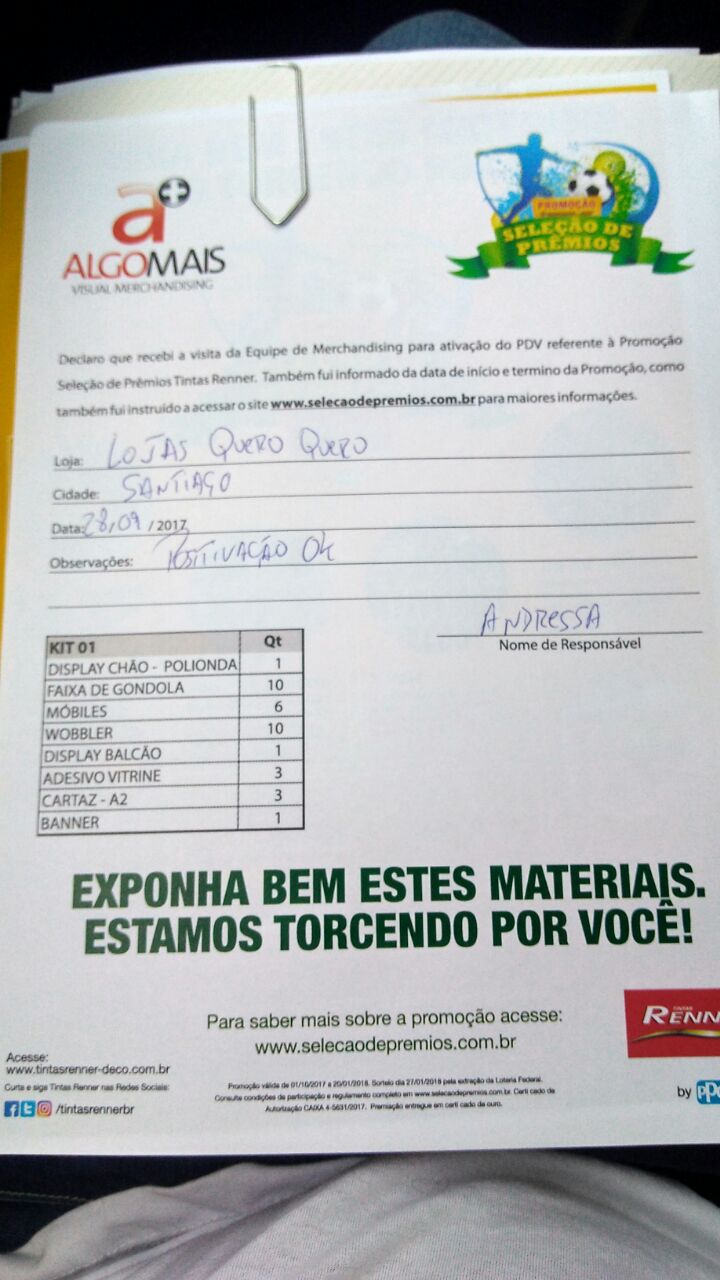 a+
ALGOMAIS
VISUAL MERCHANDISING
PROMOÇÃO
SELEÇÃO DE
PRÊMIOS
Declaro que recebi a visita da Equipe de Merchandising para ativação do PDV referente à Promoção
Seleção de Prêmios Tintas Renner. Também fui informado da data de início e termino da Promoção, como
também fui instruído a acessar o site www.selecaodepremios.com.br para maiores informações.
Loja: LOJAS QUERO QUERO
Cidade: SANTIAGO
Data: 28,09 / 2017
Observações: POSITIVAÇÃO OK
ANDRESSA
Nome de Responsável
KIT 01 Qt
DISPLAY CHÃO - POLIONDA 1
FAIXA DE GONDOLA 10
MÓBILES 6
WOBBLER 10
DISPLAY BALCÃO 1
ADESIVO VITRINE 3
CARTAZ - A2 3
BANNER 1
EXPONHA BEM ESTES MATERIAIS.
ESTAMOS TORCENDO POR VOCÊ!
Para saber mais sobre a promoção acesse:
www.selecaodepremios.com.br
TINTAS
RENN
Acesse:
www.tintasrenner-deco.com.br
Curta e siga Tintas Renner nas Redes Sociais:
/tintasrennerbr
Promoção válida de 01/10/2017 a 20/01/2018. Sorteio dia 27/01/2018 pela extração da Loteria Federal.
Consulte condições de participação e regulamento completo em www.selecaodepremios.com.br. Certi cado de
Autorização CAIXA 4-5631/2017. Premiação entregue em certi cado de ouro.
by PPG